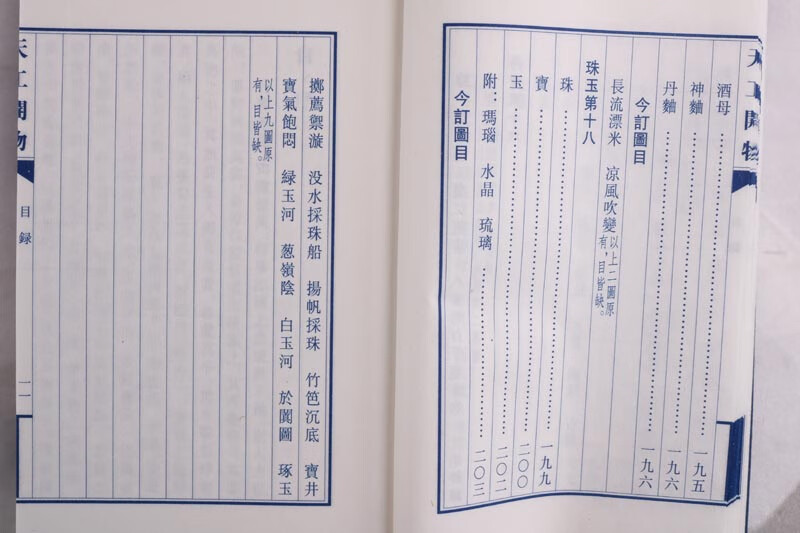 天工開物
酒母……一九五
神麯……一九六
丹麯……一九六
今訂圖目
長流漂米 涼風吹變 以上二圖原有，目皆缺。
珠玉第十八
珠……一九九
寶……二〇〇
玉……二〇二
附：瑪瑙 水晶 琉璃……二〇三
今訂圖目
擲薦禦漩 没水採珠船 揚帆採珠 竹笆沉底 寶井
寶氣飽悶 緑玉河 葱嶺陰 白玉河 於闐圖 琢玉
以上九圖原有，目皆缺。
天工開物
目録
一一